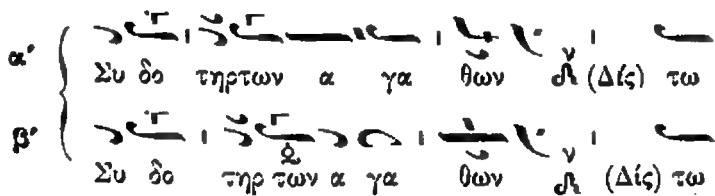 α′ Συ δο τηρτων α γα θων (Δίς) τω
β′ Συ δο τηρ των α γα θων (Δίς) τω